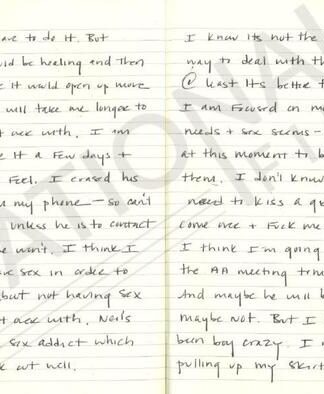 ave to do it. But
uld be healing and then
e it would open up move
will take me longer to
t over with. I am
e it a few days +
feel. I erased his
m my phone — so can't
unless he is to contact
e won't. I think I
ave sex in order to
but not having sex
t over with. Neil's
sex addict which
k out well.
I know its not the
way to deal with th
@ least its better t
I am focused on m
needs + sex seems -
at this moment to b
them. I don't know
need to kiss a gu
come over + fuck me
I think I'm going
the AA meeting tom
And maybe he will b
maybe not. But I
been boy crazy. I
pulling up my skirt